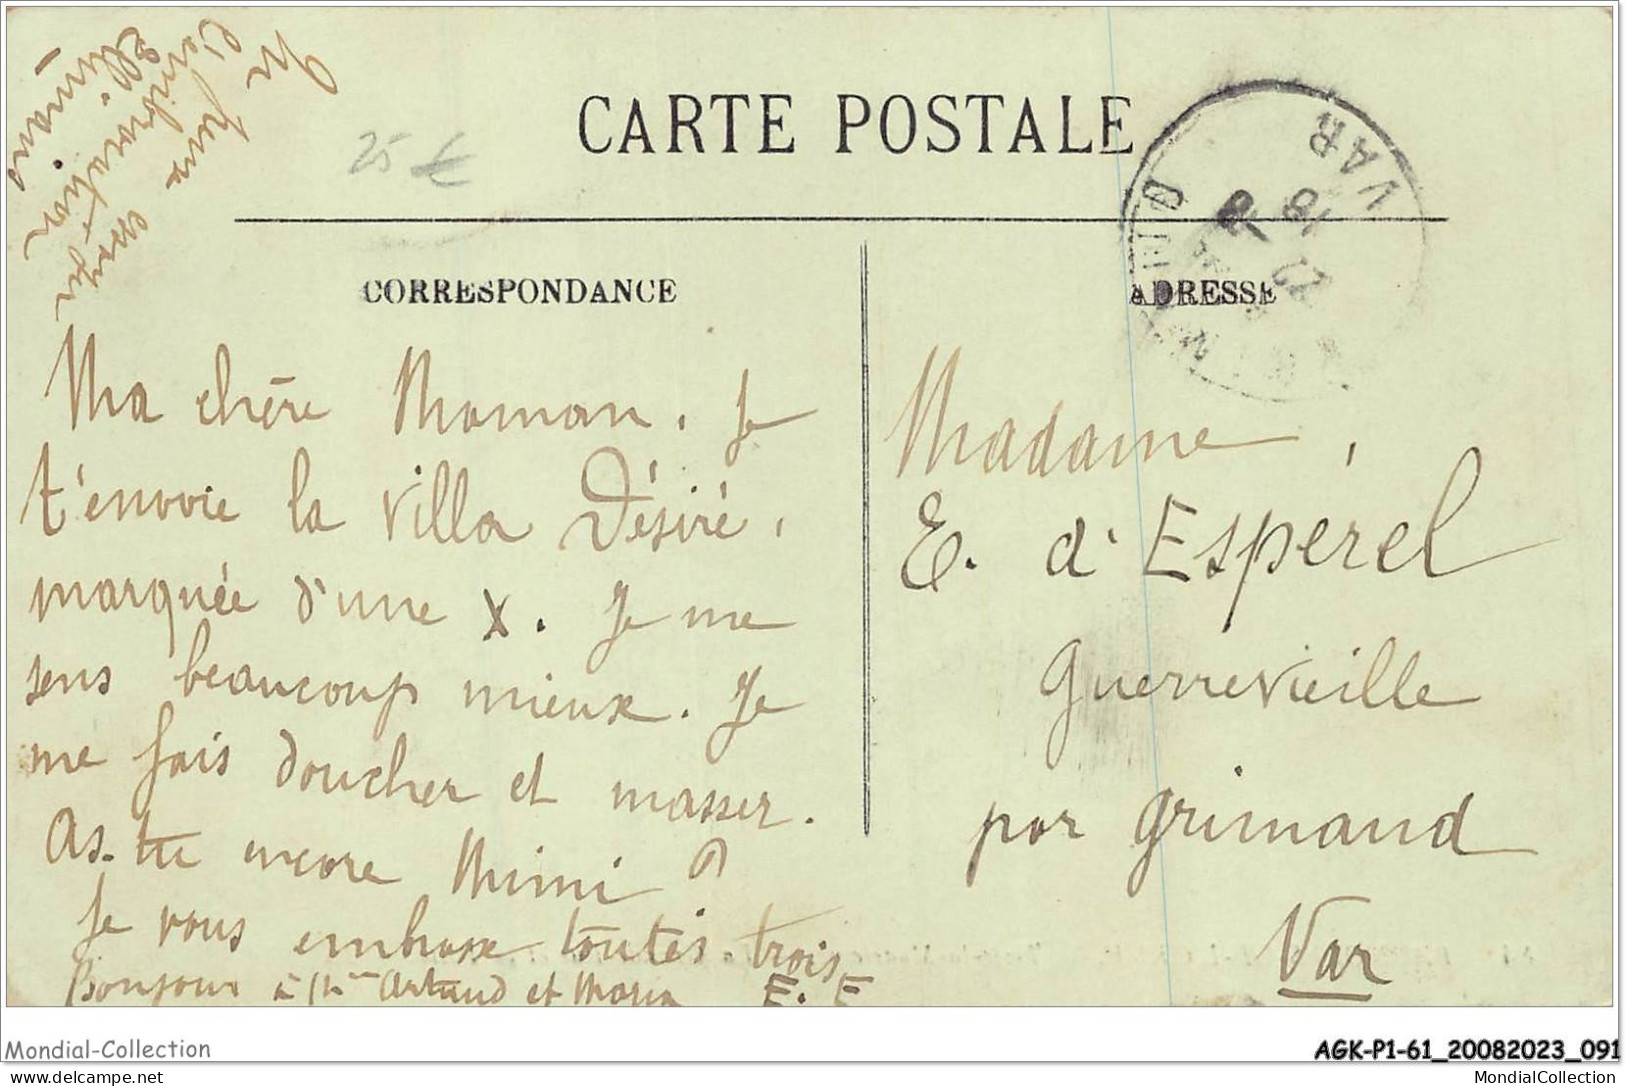 25 €
CARTE POSTALE
VAR
18
22
CORRESPONDANCE
ADRESSE
Ma chère Maman. Je
t'envoie la villa Désiré,
marquée d'une X. Je me
sens beaucoup mieux. Je
me fais doucher et masser.
As-tu encore Mimi ?
Je vous embrasse toutes trois
Bonjour à Artaud et Maria E. E
Madame,
E. d'Espérel
Guerrevieille
par Grimaud
Var
Mondial-Collection
AGK-P1-61_20082023_091
the-picture.net
MondialCollection